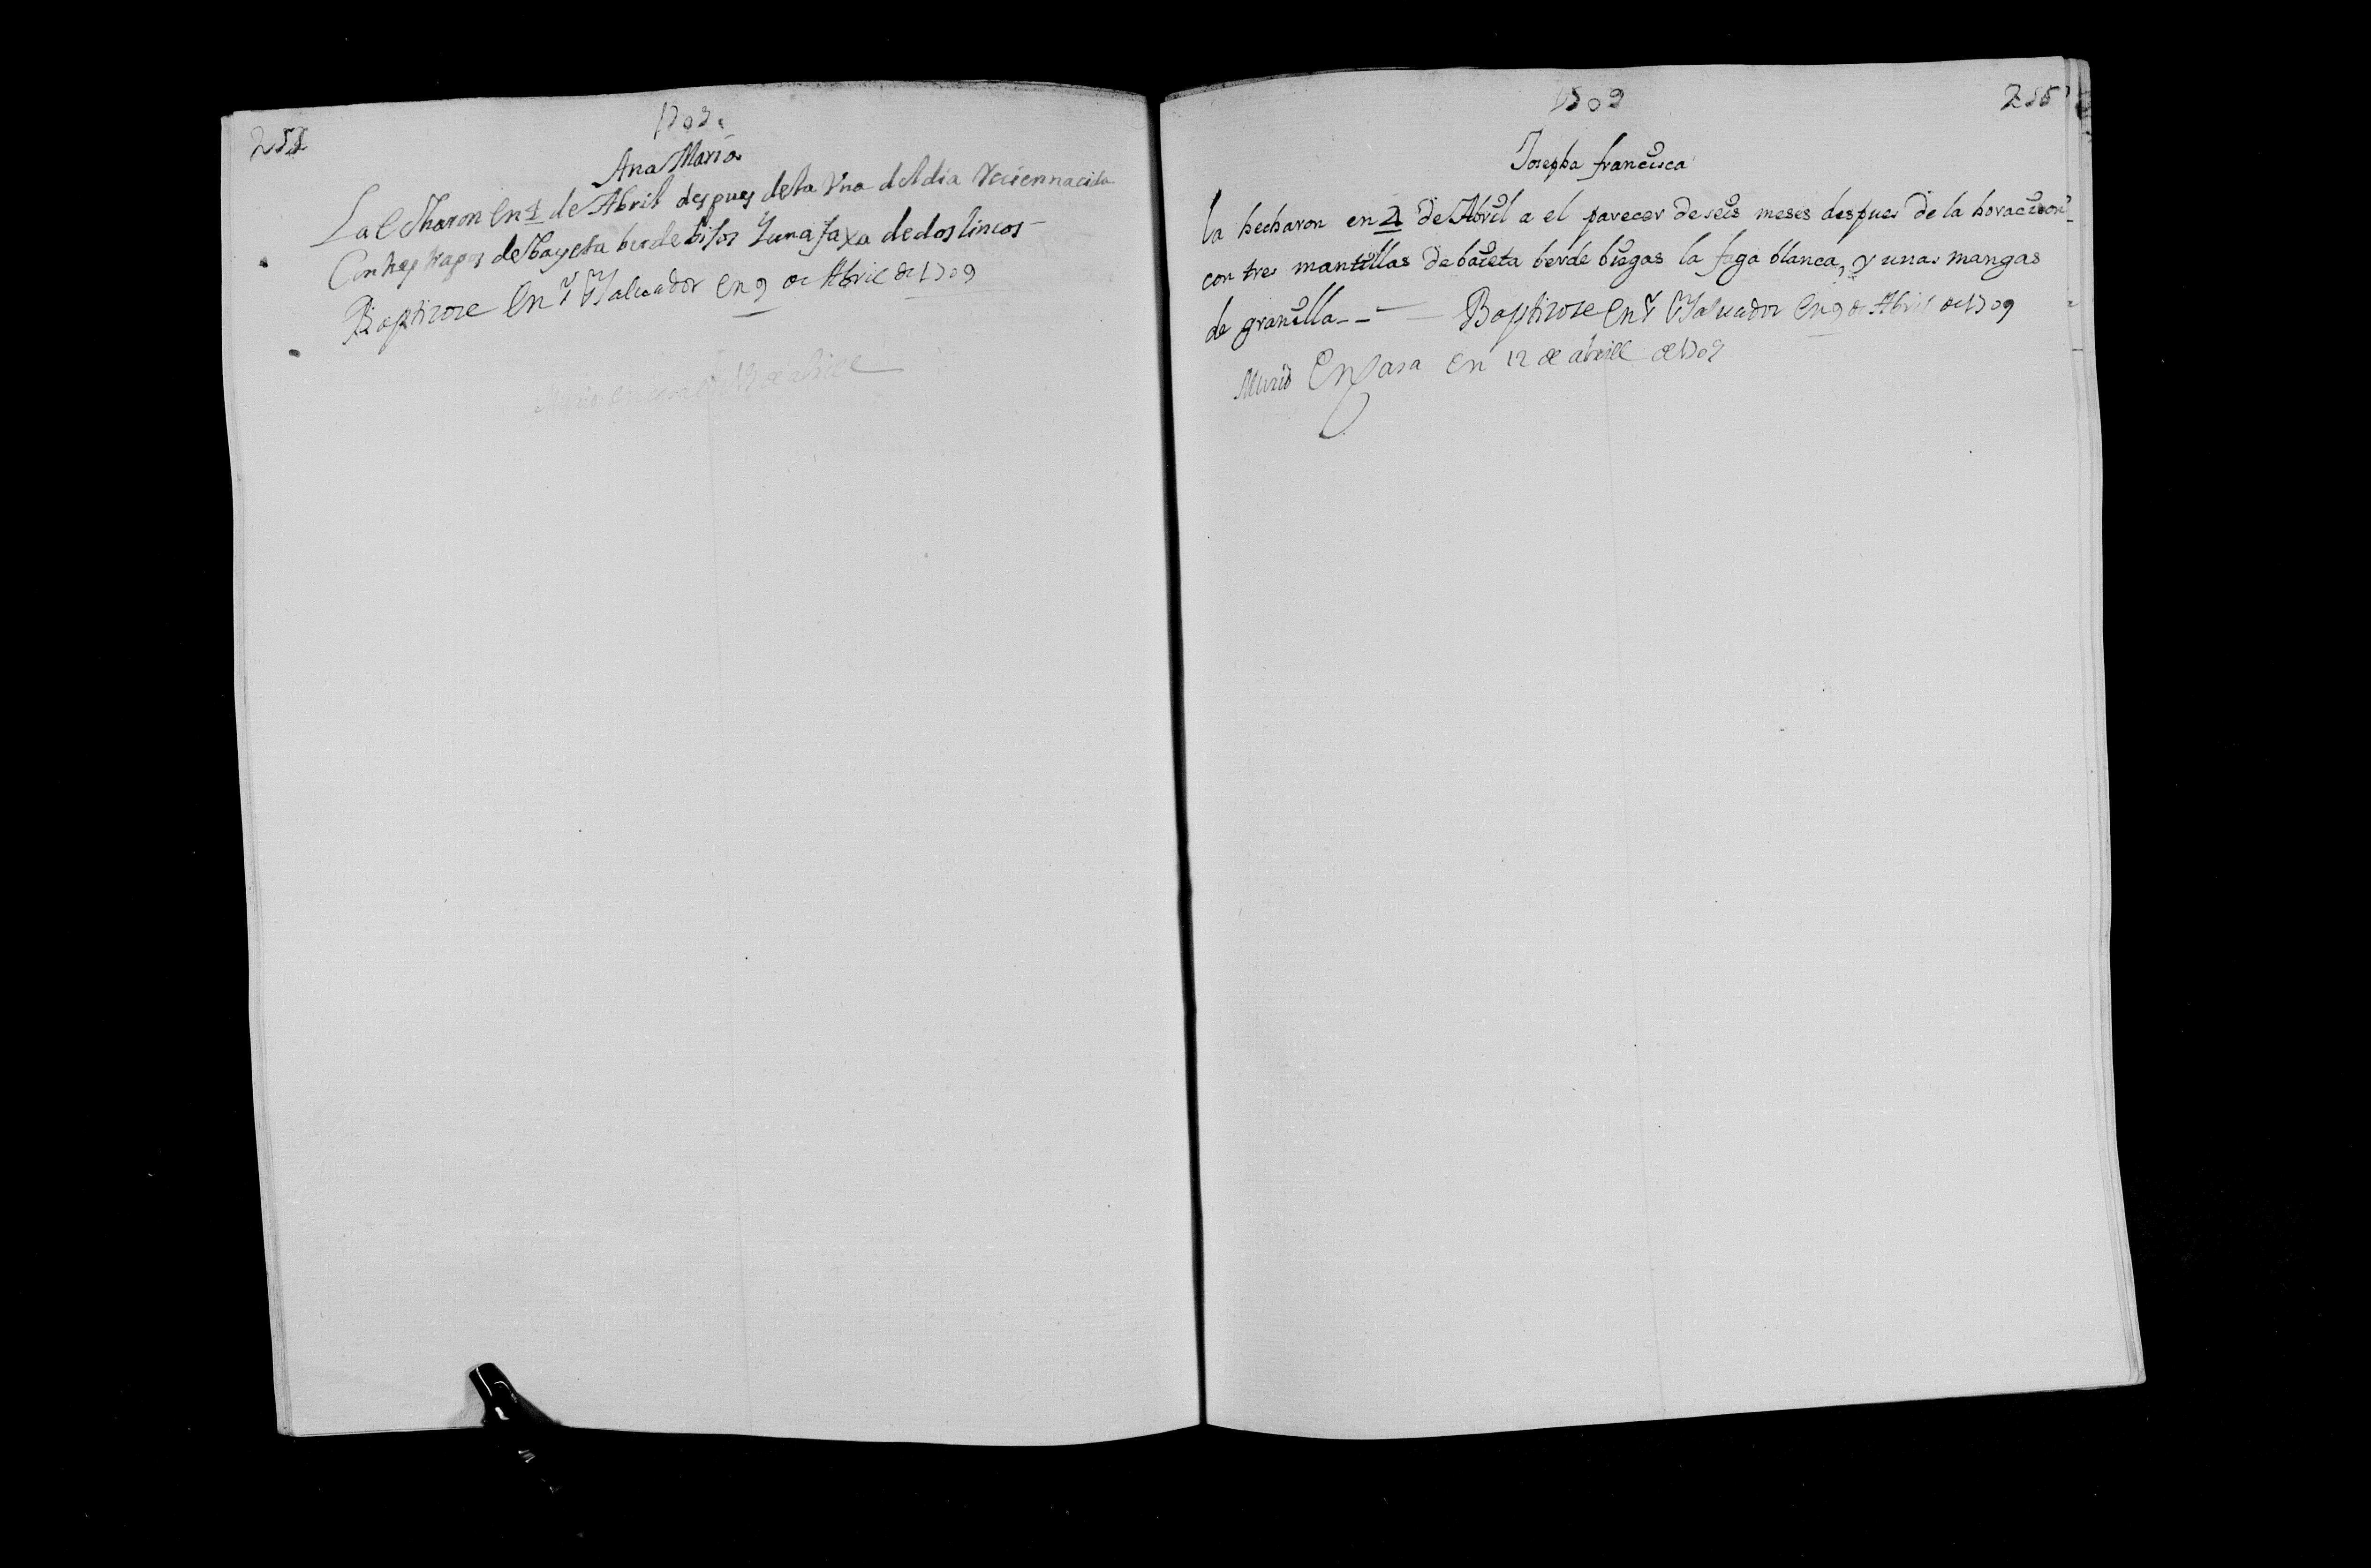 1709
Ana Maria
La Echaron en 1 de Abril despues de la Una del dia Reciennacida
Con tres trapos de Bayeta berde bijos Y una faxa de dos lincos
Baptizose En Sn Saluador En 9 de Abril de 1709
Murio en casa en de abrill
1709
Josepha francisca
la hecharon en 2 de Abril a el parecer de seis meses despues de la horacion
con tres mantillas de baieta berde biegas la faga blanca, y unas mangas
de granilla - - Baptizose En Sn Saluador En 9 de Abril de 1709
Murio En Casa en 12 de abrill de 1709